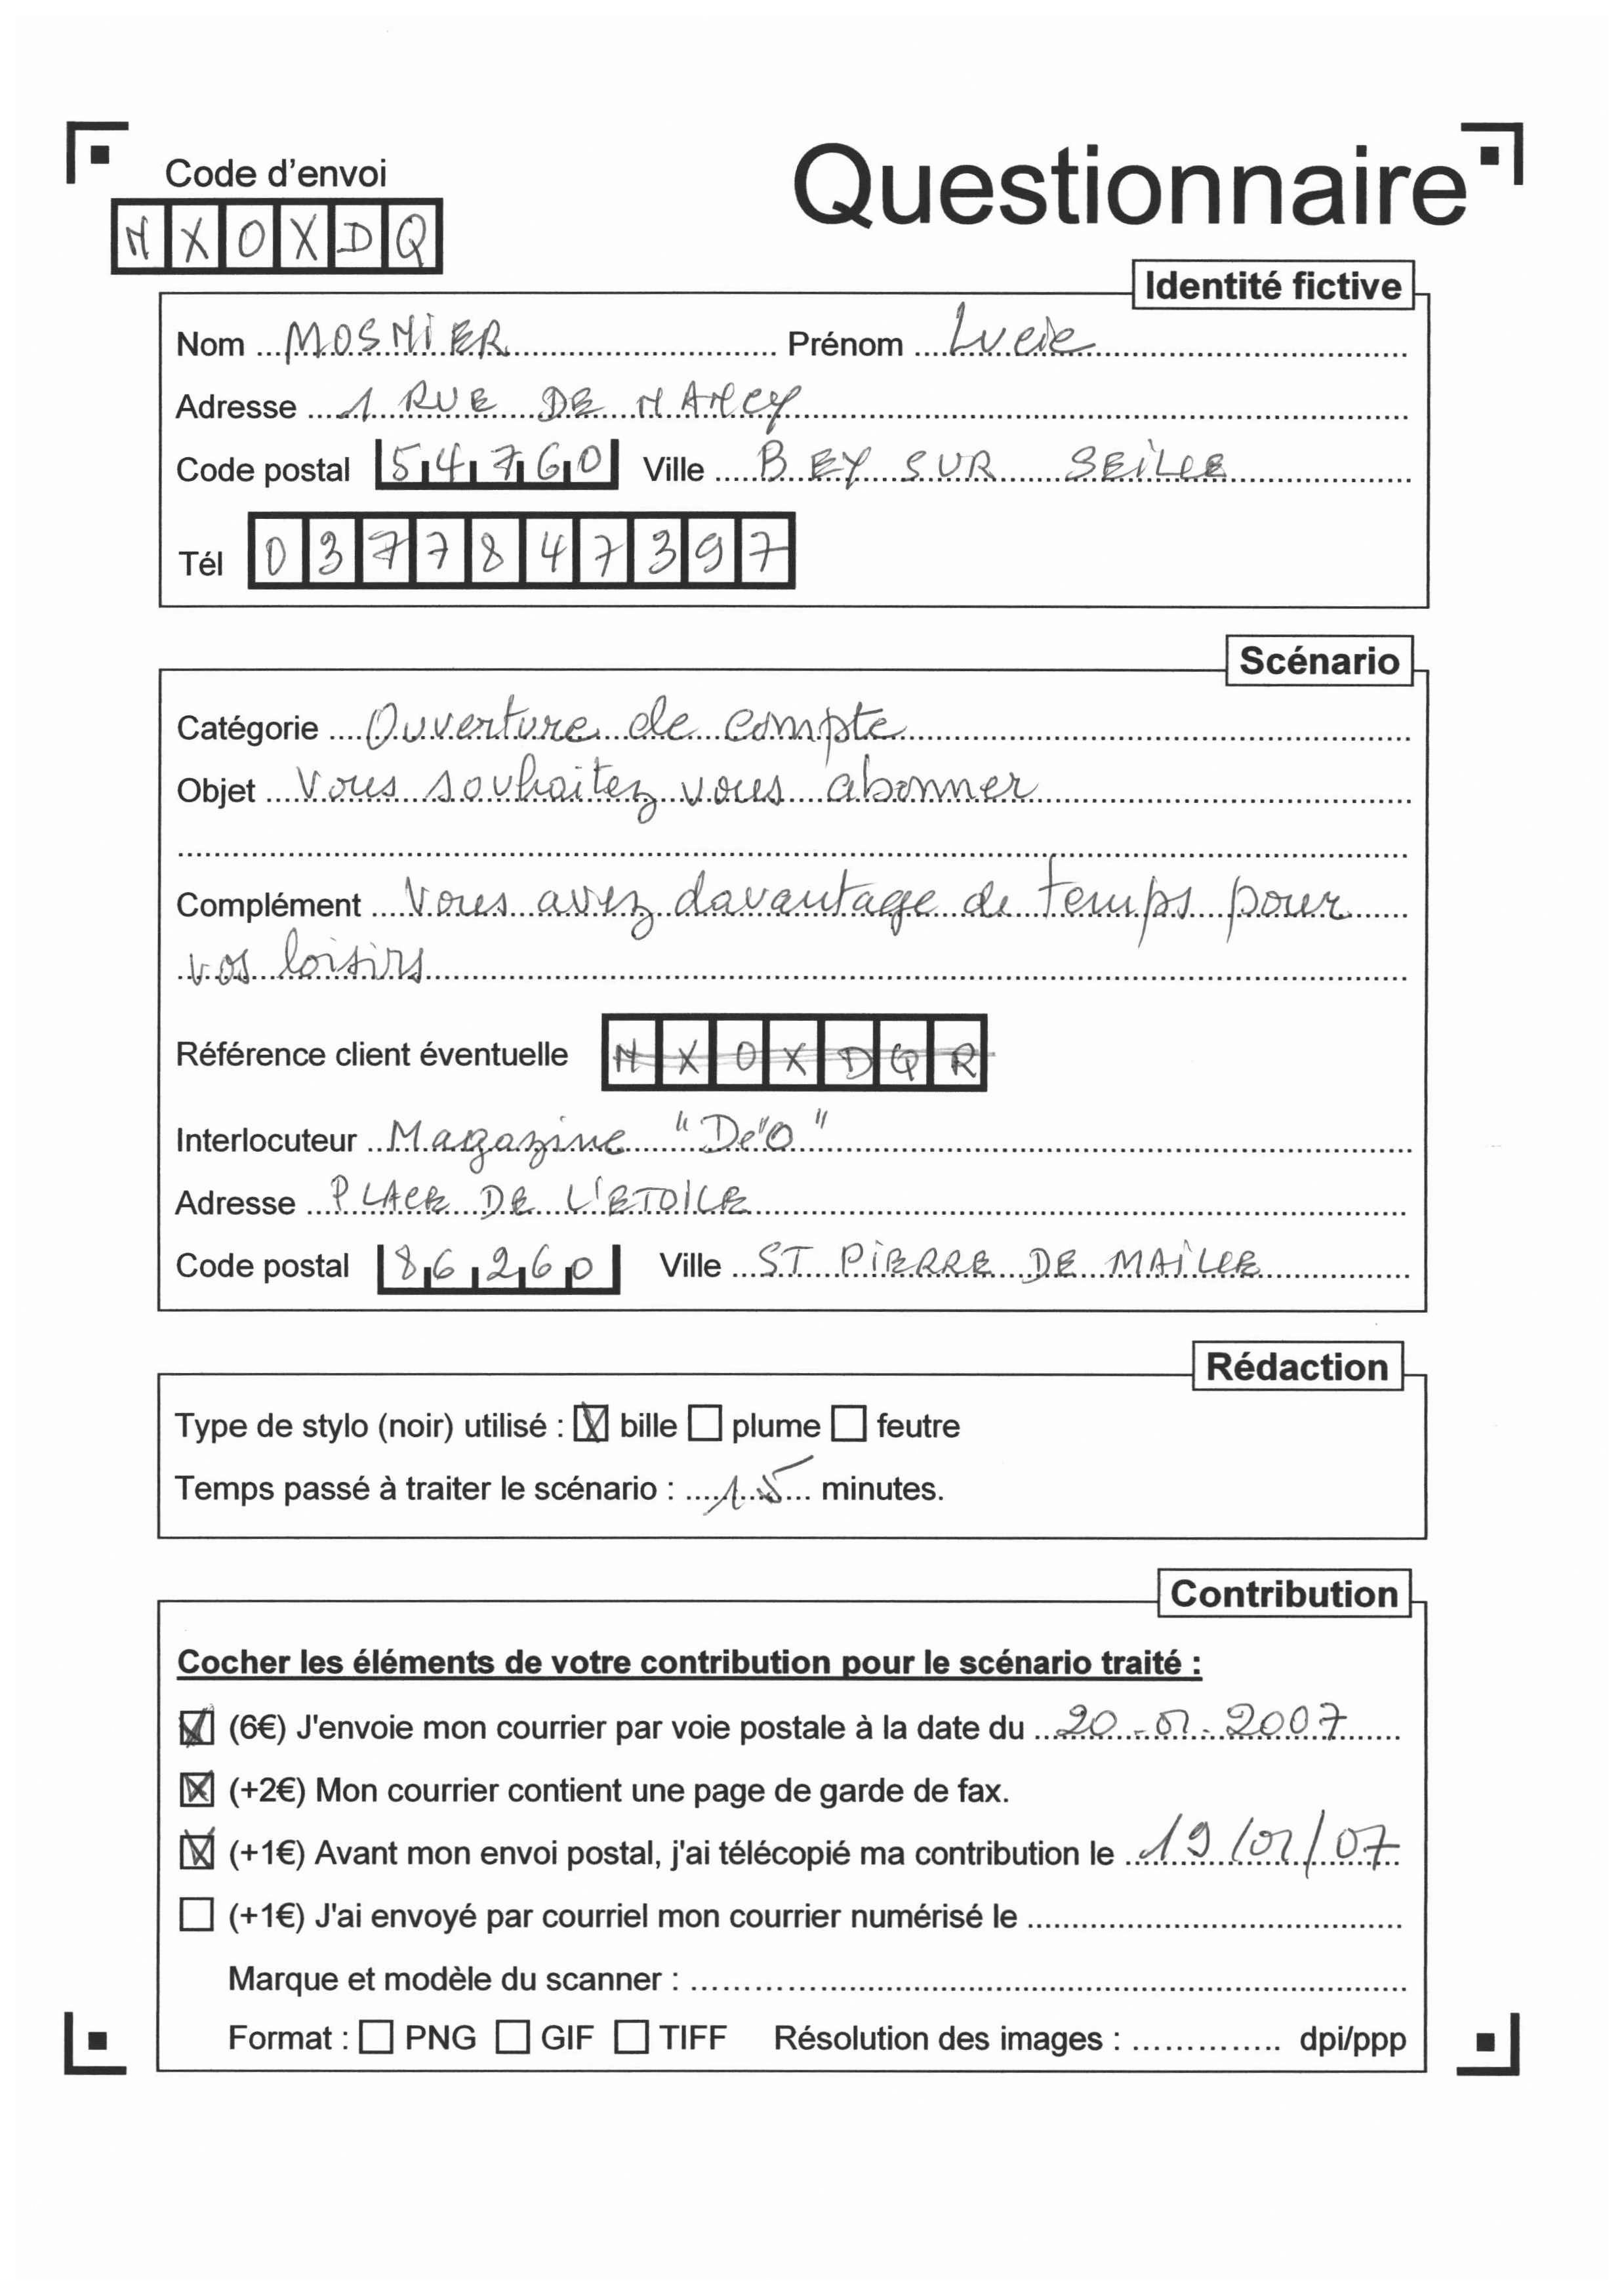 Code d'envoi
Questionnaire
NXOXDQ
Identité fictive
Nom MOSNIER Prénom Lucie
Adresse 1 RUE DE NANCY
Code postal 54760 Ville BEY SUR SEILLE
Tél 0377847397
Scénario
Catégorie Ouverture de compte
Objet Vous souhaitez vous abonner
Complément Vous avez davantage de temps pour
vos loisirs
Référence client éventuelle NXOXDQR
Interlocuteur Magazine "De"O"
Adresse PLACE DE L'ETOILE
Code postal 86260 Ville ST PIERRE DE MAILLE
Rédaction
Type de stylo (noir) utilisé : bille plume feutre
Temps passé à traiter le scénario : 15 minutes.
Contribution
Cocher les éléments de votre contribution pour le scénario traité :
(6€) J'envoie mon courrier par voie postale à la date du 20-01-2007
(+2€) Mon courrier contient une page de garde de fax.
(+1€) Avant mon envoi postal, j'ai télécopié ma contribution le 19/01/07
(+1€) J'ai envoyé par courriel mon courrier numérisé le
Marque et modèle du scanner :
Format : PNG GIF TIFF Résolution des images : dpi/ppp